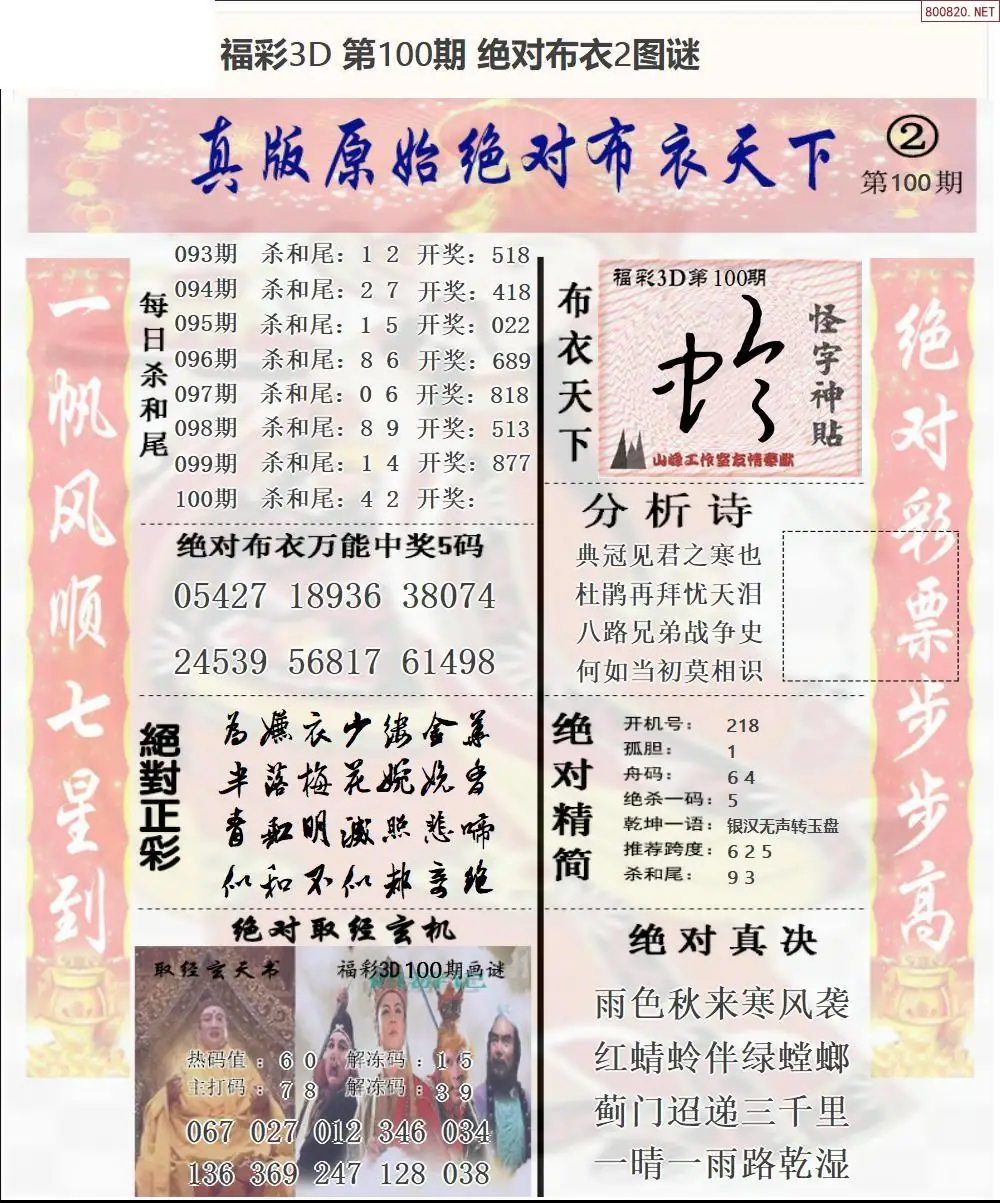 800820.NET
福彩3D 第100期 绝对布衣2图谜
真版原始绝对布衣天下
②
第100期
一帆风顺七星到
每日杀和尾
093期 杀和尾：1 2 开奖：518
094期 杀和尾：2 7 开奖：418
095期 杀和尾：1 5 开奖：022
096期 杀和尾：8 6 开奖：689
097期 杀和尾：0 6 开奖：818
098期 杀和尾：8 9 开奖：513
099期 杀和尾：1 4 开奖：877
100期 杀和尾：4 2 开奖：
绝对布衣万能中奖5码
05427 18936 38074
24539 56817 61498
絕對正彩
半落梅花婉娩香
似和不似都奇绝
绝对取经玄机
取经玄天书
福彩3D100期画谜
热码值：6 0 解冻码：1 5
主打码：7 8 解冻码：3 9
067 027 012 346 034
136 369 247 128 038
布衣天下
福彩3D第100期
怪字神貼
山峰工作室友情奉献
分析诗
典冠见君之寒也
杜鹃再拜忧天泪
八路兄弟战争史
何如当初莫相识
绝对精简
开机号：218
孤胆：1
舟码：6 4
绝杀一码：5
乾坤一语：银汉无声转玉盘
推荐跨度：6 2 5
杀和尾：9 3
绝对真决
雨色秋来寒风袭
红蜻蛉伴绿螳螂
蓟门迢递三千里
一晴一雨路乾湿
绝对彩票步步高